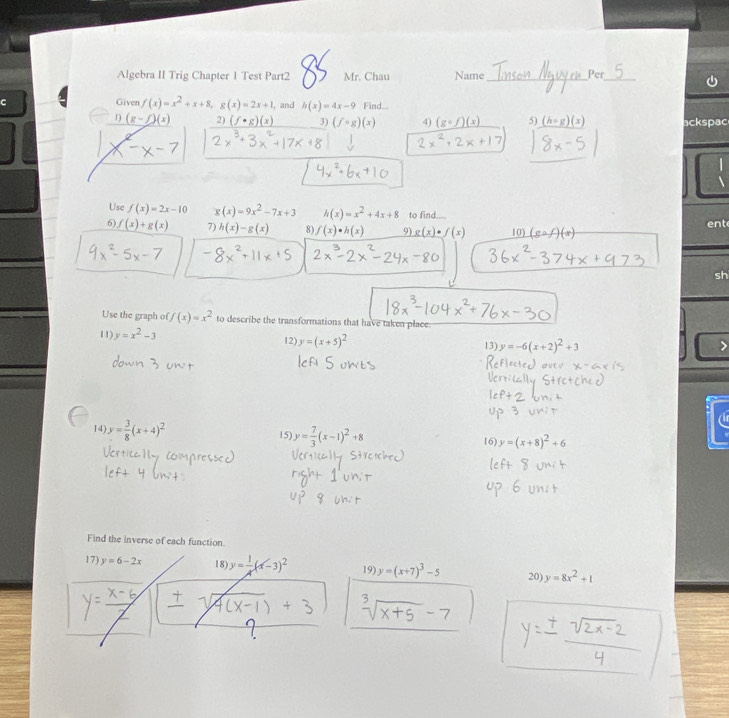 Algebra II Trig Chapter 1 Test Part2 85 Mr. Chau Name Tinson Nguyen Per 5
Given f(x) = x² + x + 8, g(x) = 2x + 1, and h(x) = 4x − 9 Find...
1) (g − f)(x) 2) (f • g)(x) 3) (f ∘ g)(x) 4) (g ∘ f)(x) 5) (h ∘ g)(x)
x² − x − 7 2x³ + 3x² + 17x + 8 ↓ 2x² + 2x + 17 8x − 5
4x² + 6x + 10
Use f(x) = 2x − 10 g(x) = 9x² − 7x + 3 h(x) = x² + 4x + 8 to find....
6) f(x) + g(x) 7) h(x) − g(x) 8) f(x) • h(x) 9) g(x) • f(x) 10) (g ∘ f)(x)
9x² − 5x − 7 −8x² + 11x + 5 2x³ − 2x² − 24x − 80 36x² − 374x + 973
18x³ − 104x² + 76x − 30
Use the graph of f(x) = x² to describe the transformations that have taken place.
11) y = x² − 3 12) y = (x + 5)² 13) y = −6(x + 2)² + 3
down 3 unit left 5 units Reflected over x-axis
Vertically Stretched
left 2 unit
up 3 unit
14) y = 3/8 (x + 4)² 15) y = 7/3 (x − 1)² + 8 16) y = (x + 8)² + 6
Vertically compressed Vertically stretched left 8 unit
left 4 unit right 1 unit up 6 unit
up 8 unit
Find the inverse of each function.
17) y = 6 − 2x 18) y = 1/4 (x − 3)² 19) y = (x + 7)³ − 5 20) y = 8x² + 1
y = (x − 6)/2 ± √4(x − 1) + 3 ∛x + 5 − 7 y = ± √2x − 2 / 4
?
c
ackspac
ente
sh